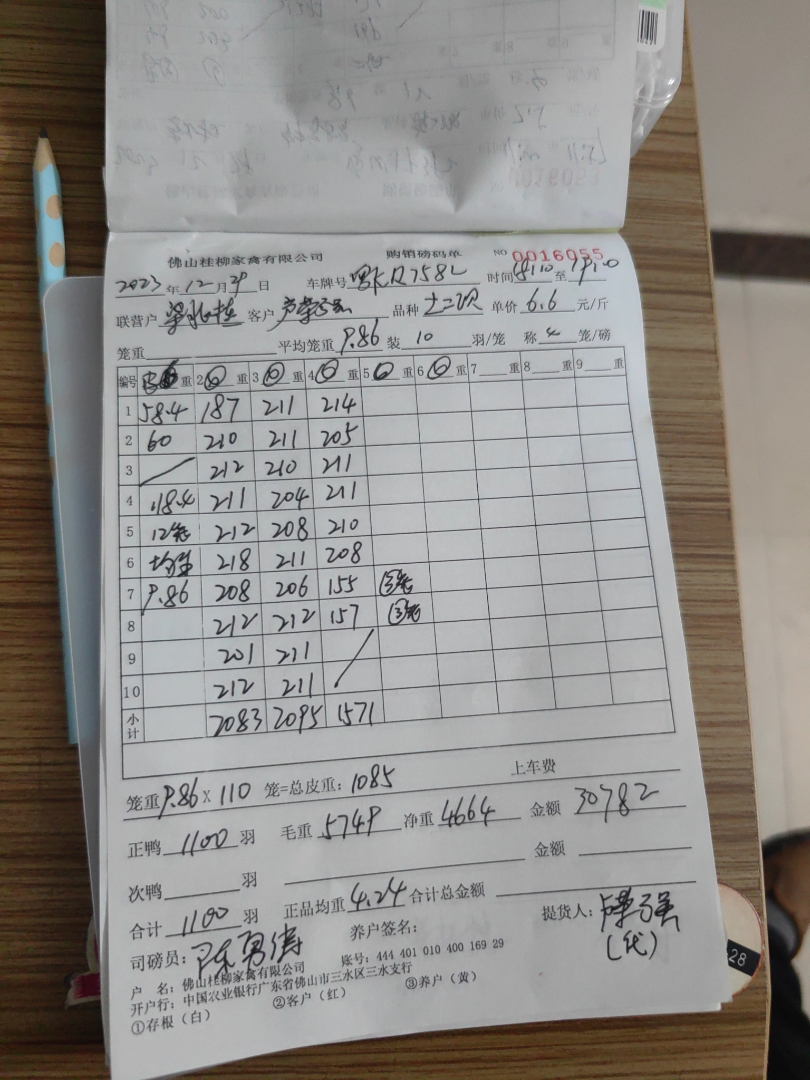 佛山桂柳家禽有限公司 购销磅码单 NO 0016055
2023年12月29日 车牌号 时间18:10至19:10
联营户 客户 品种 十二次 单价 6.6 元/斤
笼重 平均笼重 9.86 装 10 羽/笼 称 4 笼/磅
编号 皮重 2 重 3 重 4 重 5 重 6 重 7 重 8 重 9 重
1 58.4 187 211 214
2 60 210 211 205
3 212 210 211
4 118.4 211 204 211
5 12笼 212 208 210
6 均重 218 211 208
7 9.86 208 206 155 ③笼
8 212 212 157 ③笼
9 201 211
10 212 211
小计 2083 2095 1571
笼重9.86 X 110 笼=总皮重:1085 上车费
正鸭 1100 羽 毛重 5749 净重 4664 金额 30782
次鸭 羽 金额
合计 1100 羽 正品均重 4.24 合计总金额
司磅员: 养户签名: 提货人:
(代)
户 名:佛山桂柳家禽有限公司 账号:444 401 010 400 169 29
开户行:中国农业银行广东省佛山市三水区三水支行
①存根(白) ②客户(红) ③养户(黄)
28